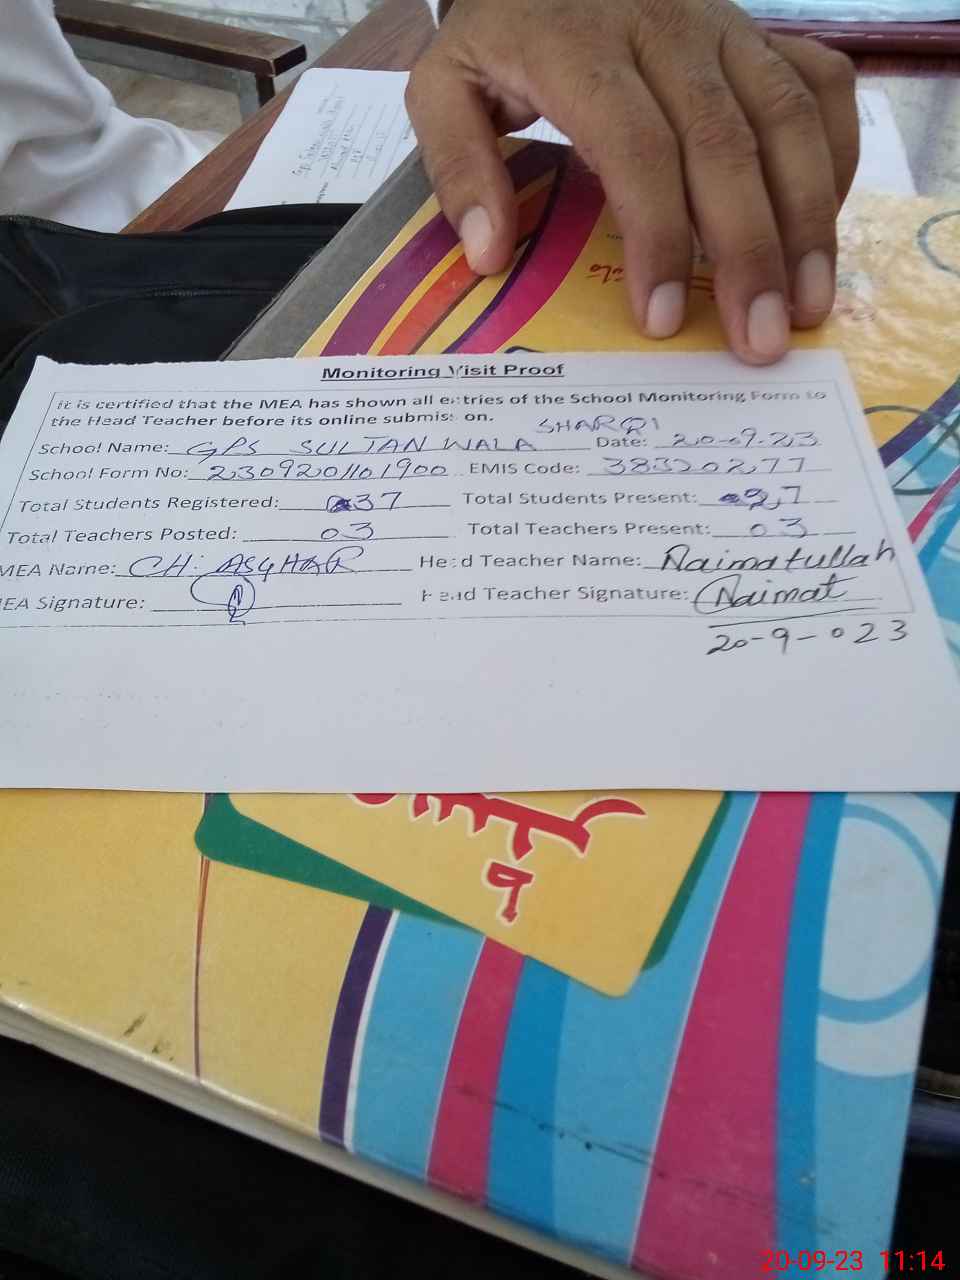 Monitoring Visit Proof
It is certified that the MEA has shown all entries of the School Monitoring Form to
the Head Teacher before its online submission.
SHARQI
School Name: GPS SULTAN WALA Date: 20-09-23
School Form No: 2309201101900 EMIS Code: 38320277
Total Students Registered: 37 Total Students Present: 27
Total Teachers Posted: 03 Total Teachers Present: 03
MEA Name: CH. ASGHAR Head Teacher Name: Naimatullah
MEA Signature: Head Teacher Signature: Naimat
20-9-023
20-09-23 11:14